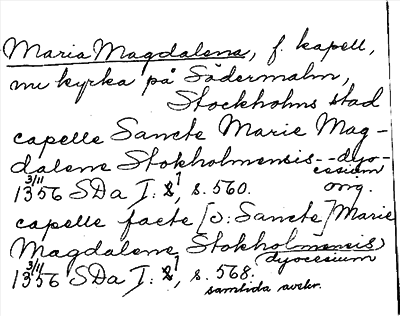 Maria Magdalena, f. kapell,
nu kyrka på Södermalm,
Stockholms stad
capelle Sancte Marie Mag-
dalene Stokholmensis -- dyo-
cesium
3/11 1356 SDa I: 1, s. 560. orig.
capelle facte [o: Sancte] Marie
Magdalene Stokholmensis
dyocesium
3/11 1356 SDa I: 1, s. 568.
samtida avskr.